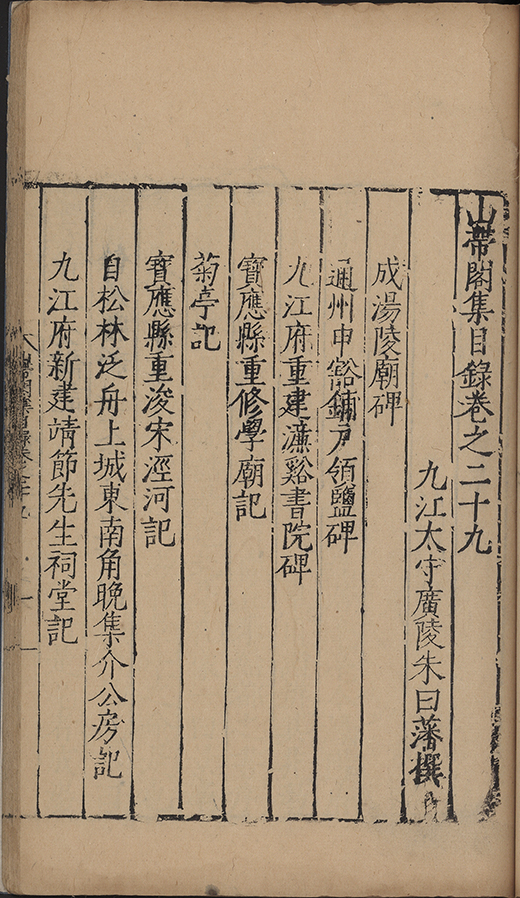 山帶閣集目錄卷之二十九
九江太守廣陵朱曰藩撰
成湯陵廟碑
通州申豁鋪戶領鹽碑
九江府重建濂谿書院碑
寶應縣重修學廟記
菊亭記
寳應縣重浚宋涇河記
自松林泛舟上城東南角晚集介公房記
九江府新建靖節先生祠堂記